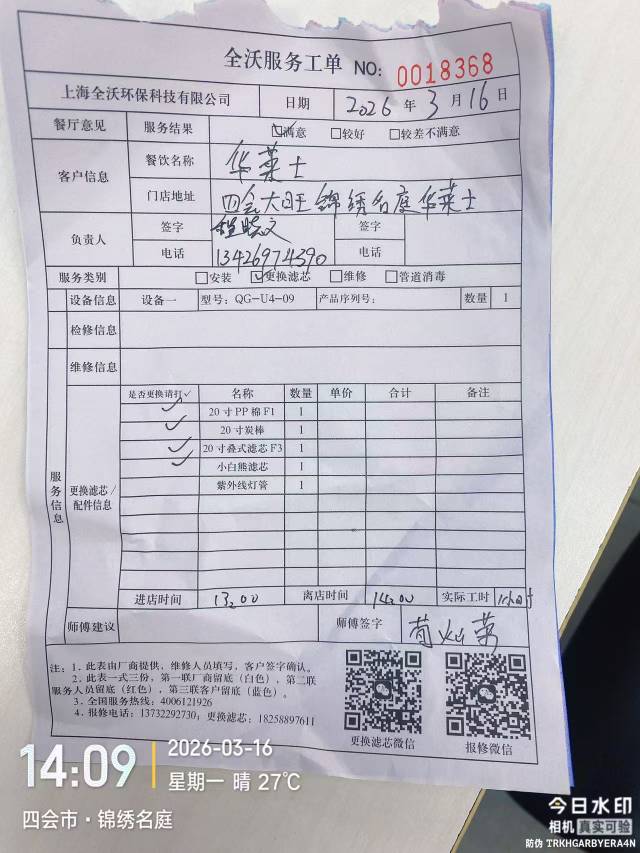 全沃服务工单 NO: 0018368
上海全沃环保科技有限公司 日期 2026 年 3 月 16 日
餐厅意见 服务结果 ☑满意 □较好 □较差不满意
客户信息 餐饮名称 华莱士
门店地址 四会大旺锦绣名庭华莱士
负责人 签字 签字
电话 13426974390 电话
服务类别 □安装 ☑更换滤芯 □维修 □管道消毒
设备信息 设备一 型号: QG-U4-09 产品序列号: 数量 1
检修信息
维修信息
服务信息
更换滤芯/配件信息
是否更换请打✓ 名称 数量 单价 合计 备注
✓ 20寸PP棉F1 1
✓ 20寸炭棒 1
✓ 20寸叠式滤芯F3 1
✓ 小白熊滤芯 1
紫外线灯管 1
进店时间 13:00 离店时间 14:00 实际工时
师傅建议 师傅签字
注: 1. 此表由厂商提供, 维修人员填写, 客户签字确认。
2. 此表一式三份, 第一联厂商留底(白色), 第二联
服务人员留底(红色), 第三联客户留底(蓝色)。
3. 全国服务热线: 4006121926
4. 报修电话: 13732292730; 更换滤芯: 18258897611
更换滤芯微信 报修微信
14:09 2026-03-16
星期一 晴 27℃
四会市·锦绣名庭
今日水印
相机 真实可验
防伪 TRKHGARBYERA4N